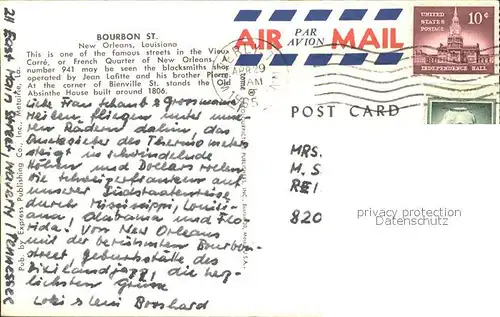 BOURBON ST.
New Orleans, Louisiana
This is one of the famous streets in the Vieux
Carré, or French Quarter of New Orleans.
number 941 may be seen the blacksmiths shop
operated by Jean Lafitte and his brother Pierre.
At the corner of Bienville St. stands the Old
Absinthe House built around 1806.
Meilen fliegen unter
Rädern dahin, das
des Thermometers
steigt in schwindelnde
Höhen und Dollars rollen
wie Schweizerfranken auf
unserer Südstaatenreise
durch Mississippi, Louisi-
ana, Alabama und Flo-
rida. Von New Orleans
mit der berühmten Bourbon-
street, Geburtsstätte des
Dixilandjazz, die herz-
lichsten Grüsse
Bosshard
211 East Main Street, Waverly / Tennessee
Pub. by Express Publishing Co., Inc., Metairie, La.
AIR PAR AVION MAIL
UNITED STATES POSTAGE
10¢
INDEPENDENCE HALL
AM
POST CARD
MRS.
M. S
REI
820
privacy protection
Datenschutz